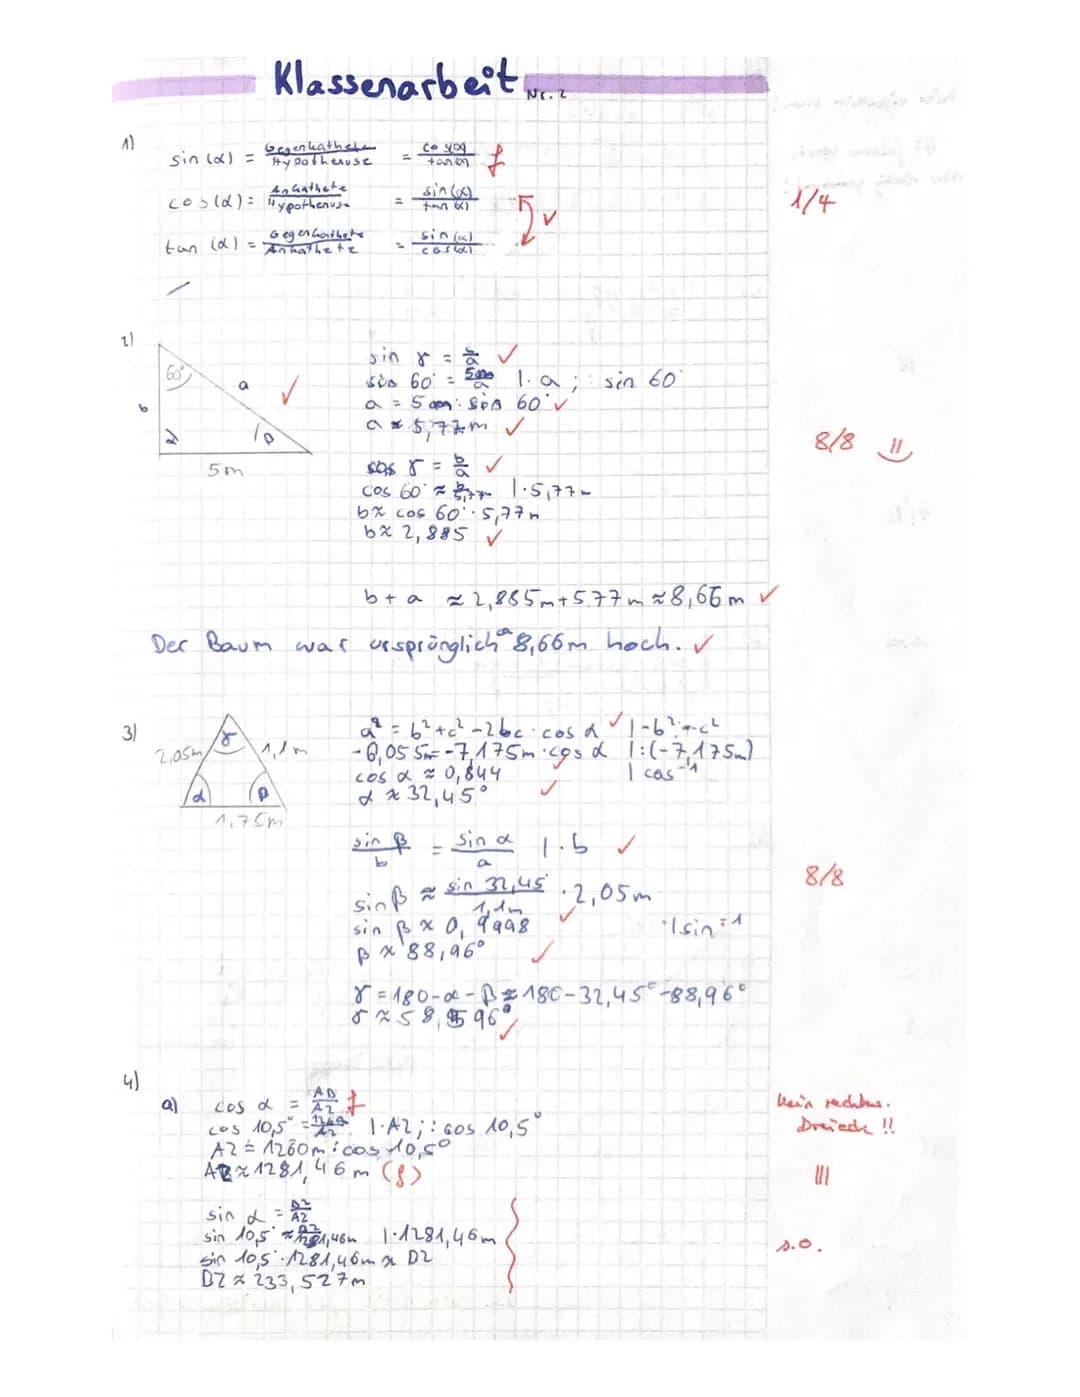 Klassenarbeit Nr. 2
1)
sin (α) = Gegenkathete / Hypothenuse = cos(α) / tan(α) f
cos (α) = Ankathete / Hypothenuse = sin(α) / tan(α)
1/4
tan (α) = Gegenkathete / Ankathete = sin(α) / cos(α) ✓
2)
60° a b α β 5m ✓
sin γ = 5 / a ✓
sin 60° = 5m / a |· a ; : sin 60°
a = 5m : sin 60° ✓
a ≈ 5,77m ✓
8/8
cos γ = b / a ✓
cos 60° ≈ b / 5,77m |· 5,77m
b ≈ cos 60° · 5,77m
b ≈ 2,885 ✓
b + a ≈ 2,885m + 5,77m ≈ 8,66m ✓
Der Baum war ursprünglich 8,66m hoch. ✓
3)
2,05m γ 1,1m α β 1,75m
a² = b² + c² - 2bc · cos α ✓ |-b² ; -c²
-6,055 = -7,175m · cos α |: (-7,175m)
cos α ≈ 0,844 ✓ | cos⁻¹
α ≈ 32,45° ✓
sin β / b = sin α / a |· b ✓
8/8
sin β ≈ sin 32,45 / 1,1m · 2,05m
sin β ≈ 0,9998 ✓ | sin⁻¹
β ≈ 88,96° ✓
γ = 180 - α - β ≈ 180 - 32,45° - 88,96°
γ ≈ 58,596° ✓
4)
a) cos α = AD / AZ f
kein rechtw.
Dreieck !!
cos 10,5° = 1260 / AZ |· AZ ; : cos 10,5°
AZ = 1260m : cos 10,5°
AZ ≈ 1281,46m (f)
sin α = DZ / AZ
sin 10,5° ≈ DZ / 1281,46m |· 1281,46m
s.o.
sin 10,5° · 1281,46m ≈ DZ
DZ ≈ 233,527m